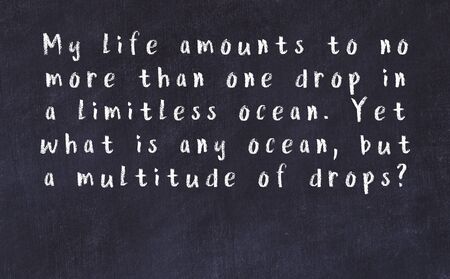 My life amounts to no
more than one drop in
a limitless ocean. Yet
what is any ocean, but
a multitude of drops?